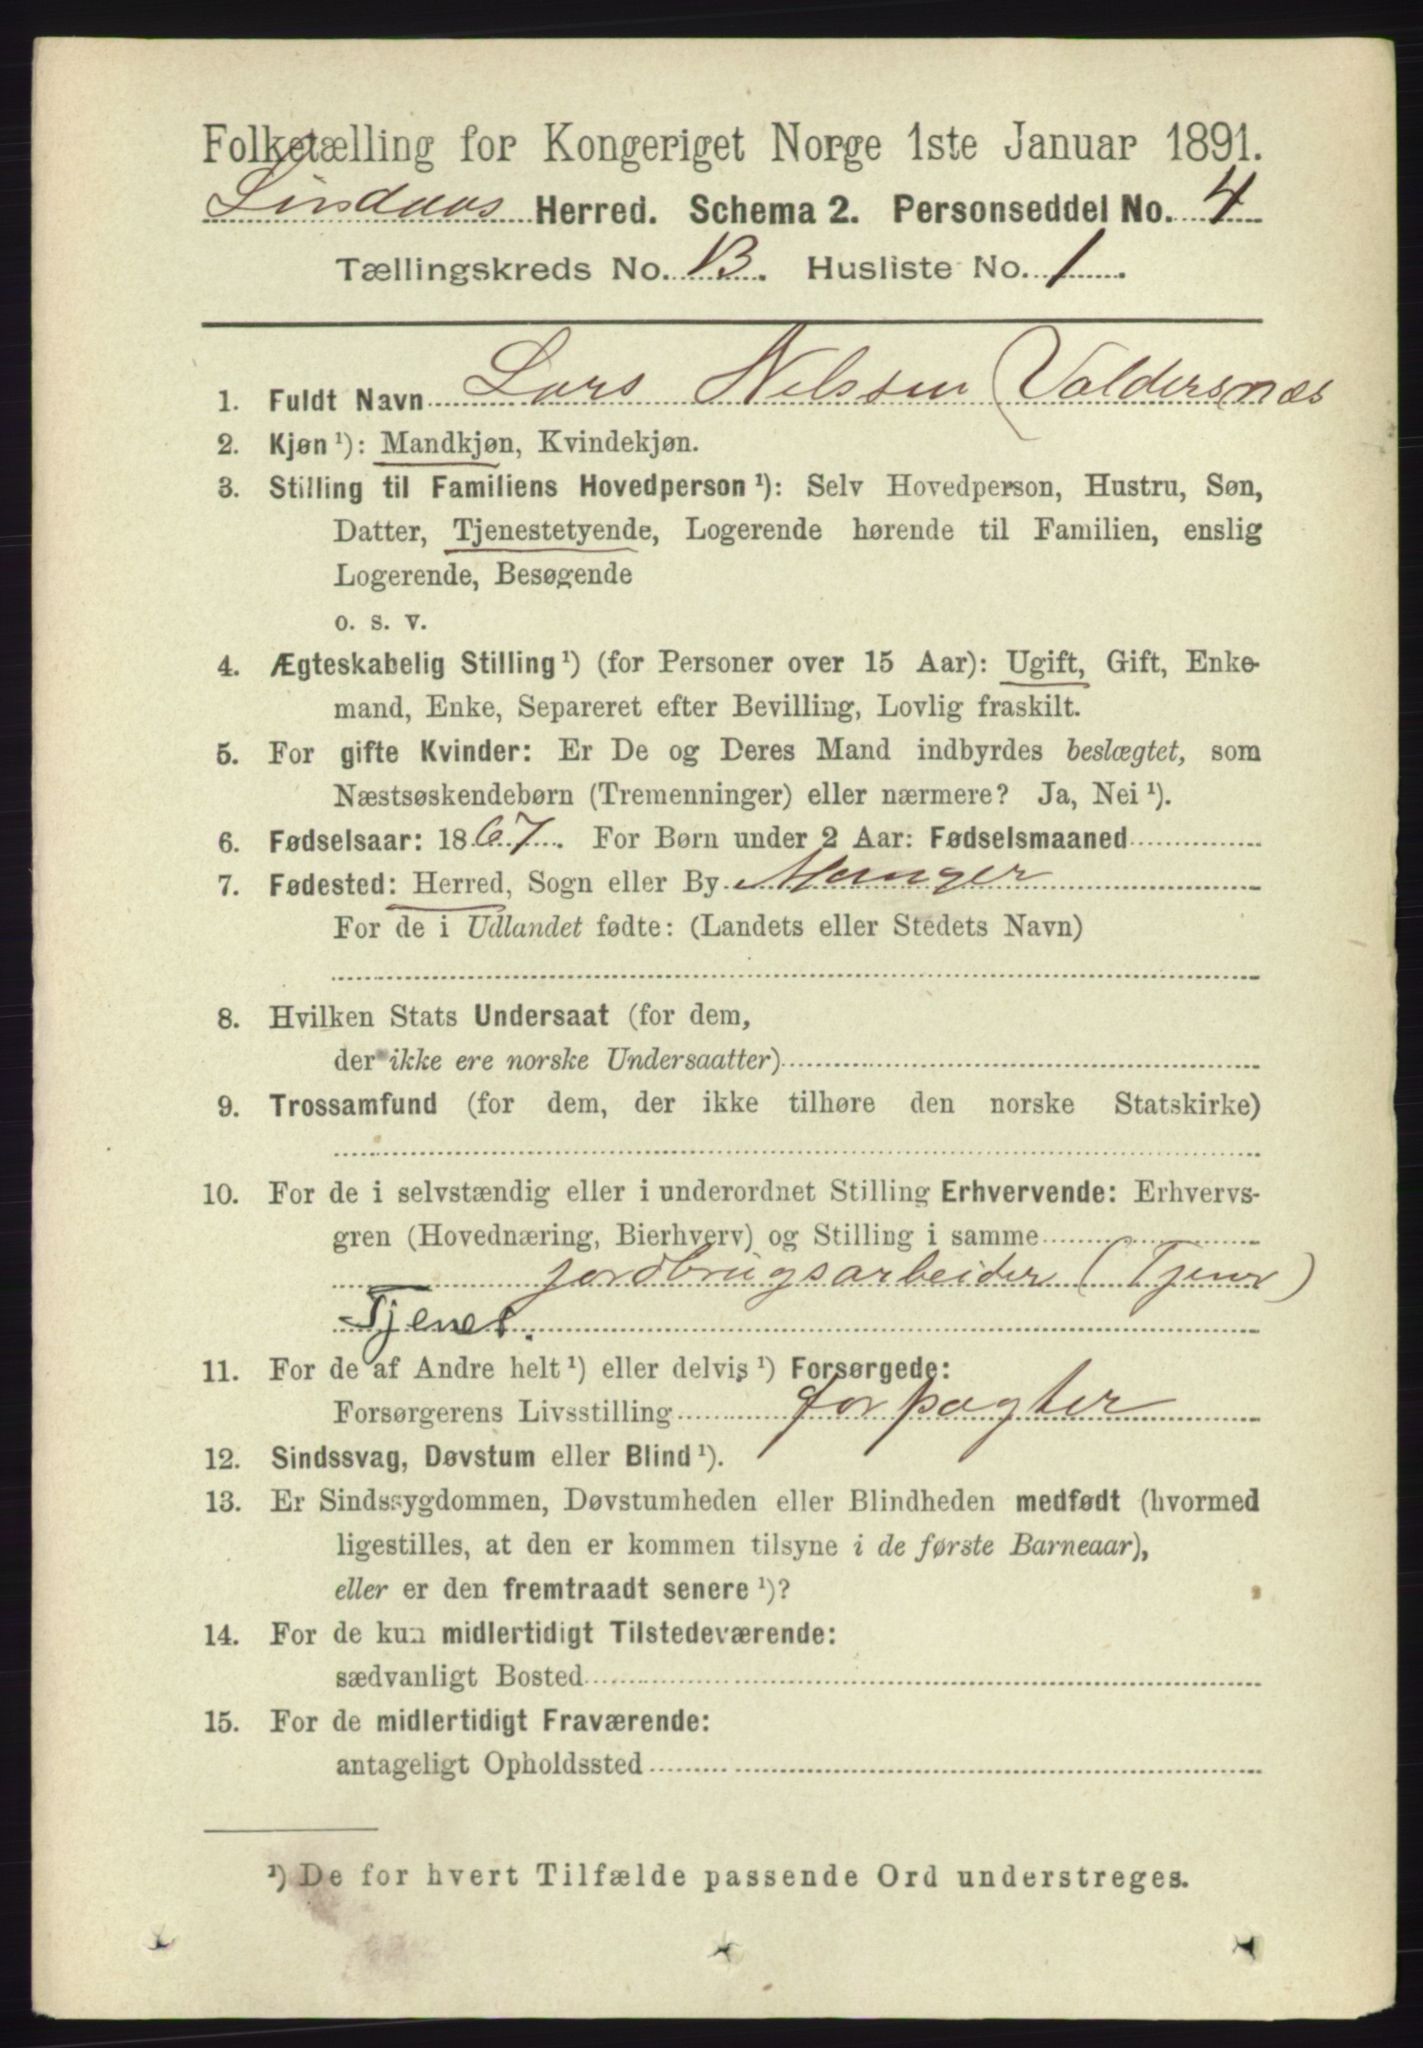 Folketælling for Kongeriget Norge 1ste Januar 1891.
Lindaas Herred. Schema 2. Personseddel No. 4
Tællingskreds No. 13. Husliste No. 1.
1. Fuldt Navn Lars Nelssen (Valdersnæs
2. Kjøn ¹): Mandkjøn, Kvindekjøn.
3. Stilling til Familiens Hovedperson ¹): Selv Hovedperson, Hustru, Søn,
Datter, Tjenestetyende, Logerende hørende til Familien, enslig
Logerende, Besøgende
o. s. v.
4. Ægteskabelig Stilling ¹) (for Personer over 15 Aar): Ugift, Gift, Enke-
mand, Enke, Separeret efter Bevilling, Lovlig fraskilt.
5. For gifte Kvinder: Er De og Deres Mand indbyrdes beslægtet, som
Næstsøskendebørn (Tremenninger) eller nærmere? Ja, Nei ¹).
6. Fødselsaar: 1867. For Børn under 2 Aar: Fødselsmaaned
7. Fødested: Herred, Sogn eller By Manger
For de i Udlandet fødte: (Landets eller Stedets Navn)
8. Hvilken Stats Undersaat (for dem,
der ikke ere norske Undersaatter)
9. Trossamfund (for dem, der ikke tilhøre den norske Statskirke)
10. For de i selvstændig eller i underordnet Stilling Erhvervende: Erhvervs-
gren (Hovednæring, Bierhverv) og Stilling i samme
jordbrugsarbeider (Tjener)
Tjener.
11. For de af Andre helt ¹) eller delvis ¹) Forsørgede:
Forsørgerens Livsstilling forpagter
12. Sindssvag, Døvstum eller Blind ¹).
13. Er Sindssygdommen, Døvstumheden eller Blindheden medfødt (hvormed
ligestilles, at den er kommen tilsyne i de første Barneaar),
eller er den fremtraadt senere ¹)?
14. For de kun midlertidigt Tilstedeværende:
sædvanligt Bosted
15. For de midlertidigt Fraværende:
antageligt Opholdssted
¹) De for hvert Tilfælde passende Ord understreges.